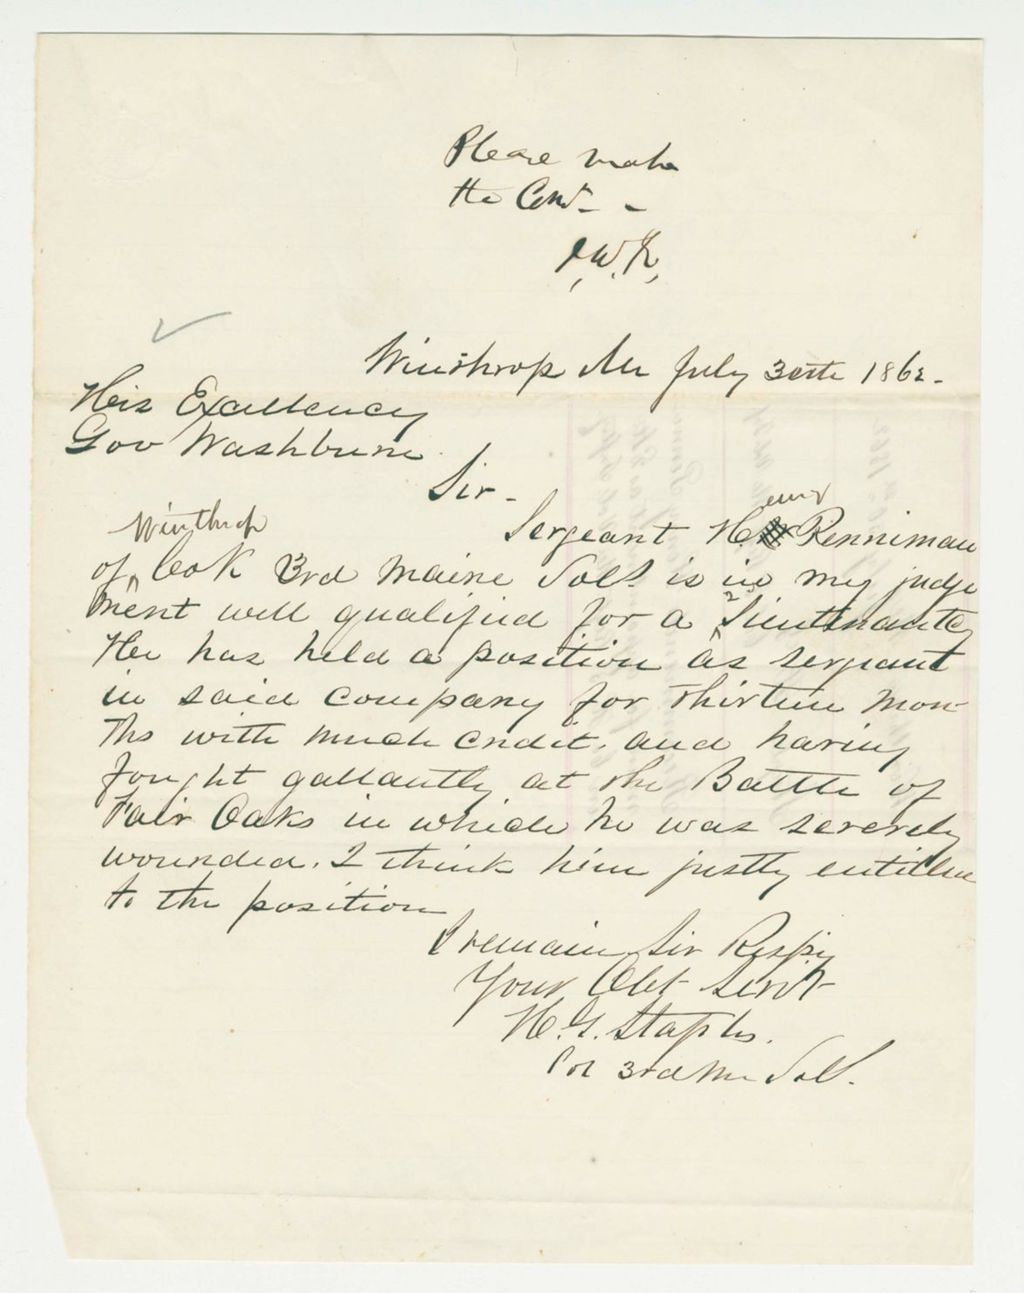 Please make
the Com - -
I, W. H,
Winthrop Me July 30th 1862.
His Excellency
Gov Washburne
Sir -
Winthrop
Sergeant H. Penniman
of Co K 3rd Maine Vols is in my judge
ment well qualified for a 2d Lieutenantcy
He has held a position as sergeant
in said company for thirteen mon-
ths with much credit. and having
fought gallantly at the Battle of
Fair Oaks in which he was severely
wounded. I think him justly entitled
to the position
I remain Sir Respy
Your Obt Servt
H. G. Staples.
Col 3rd Me Vols.